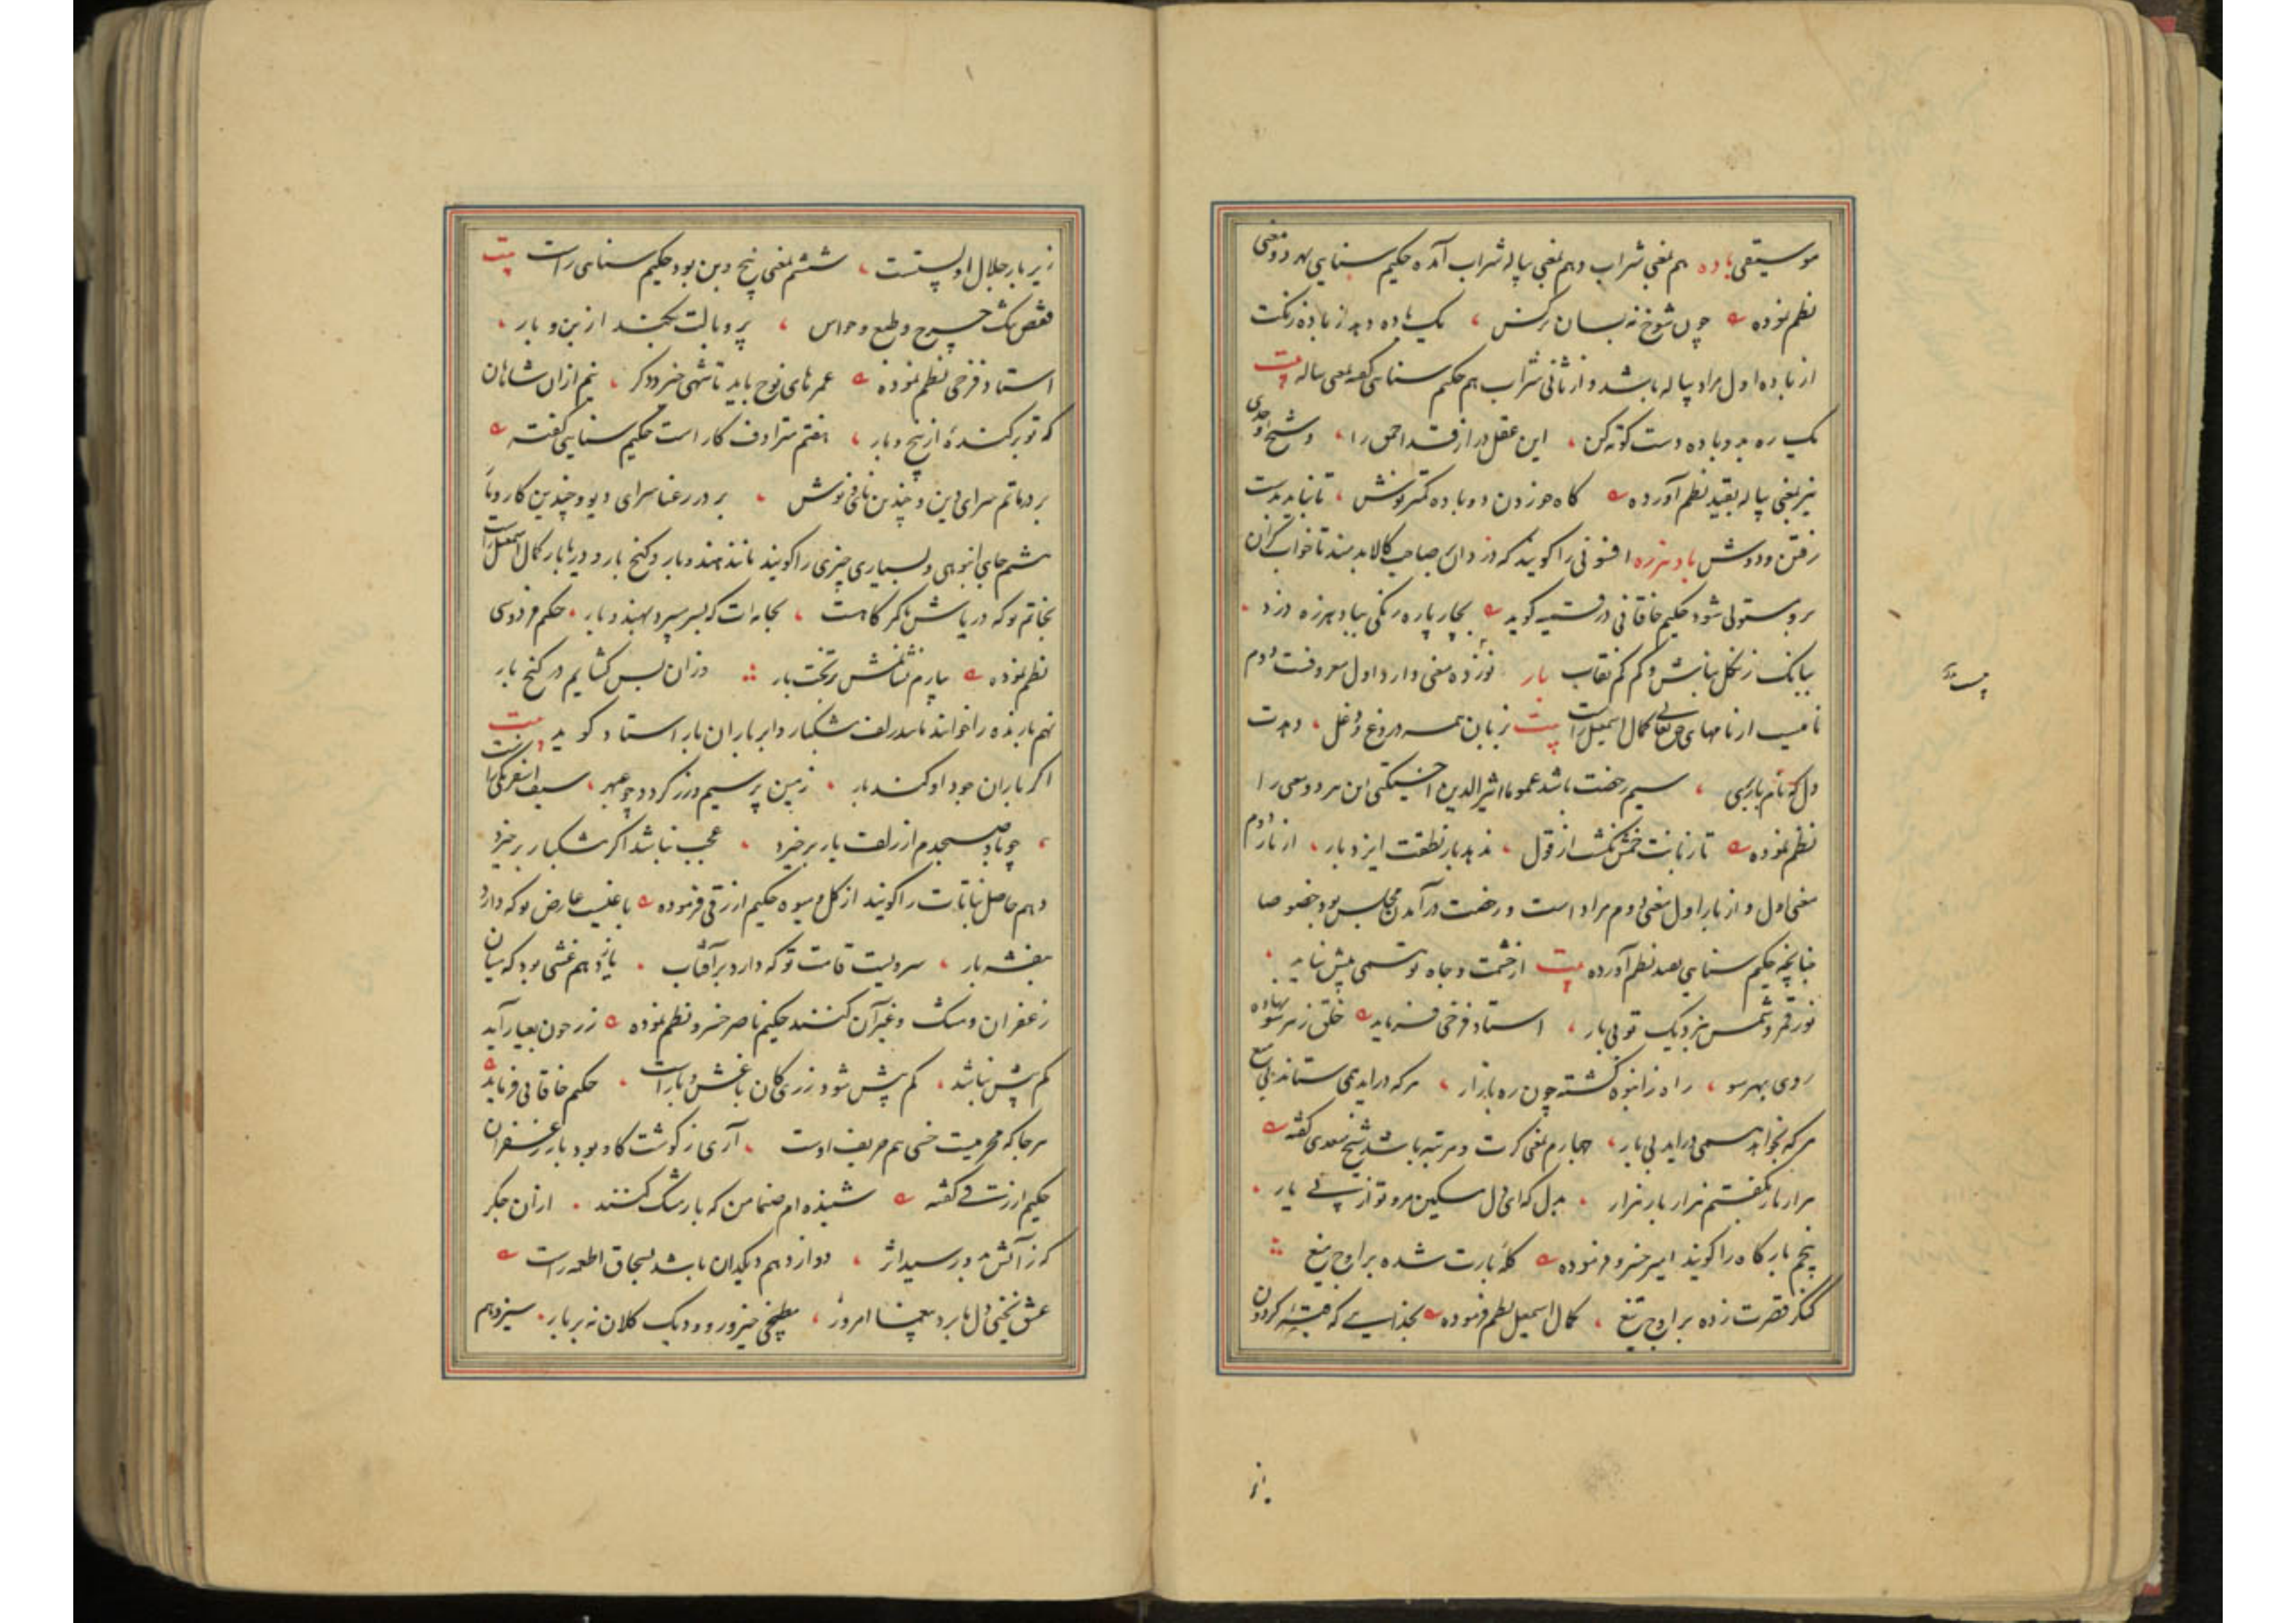 موسیقی باده هم بمعنی شراب و هم بمعنی پیاله شراب آمده حکیم سنایی بهر دو معنی
نظم نموده چون شوخ نه بسان نرکس یک باده و بد از باده زنکت
از باده اول مراد پیاله باشد و از ثانی شراب هم حکیم سنایی کفته بمعنی پیاله بیت
یک ره بدو باده دست کوته کن این عقل دراز قد احمق را و شیخ اوحدی
نیز بمعنی پیاله بقید نظم آورده کاه خوردن دو باده کمتر نوش تا نباید بدست
رفتن و دوش باد هرزه افسونی را کویند که دزدان بر صاحب کالا بدمند تا خواب کران
برو مستولی شود حکیم خاقانی در قسمیه کوید بچار پاره زنکی بباد هرزه دزد
ببانک زنکل نباش و کم کم نقاب بار نوزده معنی دارد اول معروفست دوم
نامیست از نامهای حق تعالی کمال اسمعیل راست بیت زبان همه دروغ و دغل دهدت
دل که نام باری سیم رخصت باشد عموما اثیر الدین اخسیکتی این هر دو معنی را
نظم نموده تا زبانت خمش نکشت از قول ندهد بار نطقت ایزد بار از بار دوم
معنی اول و از بار اول معنی دوم مراد است و رخصت در آمدن مجلس بود خصوصا
چنانچه حکیم سنایی بقید نظم آورده بیت از حشمت و جاه تو همی پیش نیاید
نور قمر و شمس بنزدیک تو بی بار استاد فرخی فرماید خلق ز هر سو نهاده
روی بهر سو راه ز انبوه کشته چون ره بازار هر که در آید همی ستاند بی منع
هر که بخواهد همی در آید بی بار چهارم بمعنی کرت و مرتبه باشد شیخ سعدی کفته
هزار بار بکفتم هزار بار هزار بدل که ای دل مسکین مرو تو از پی یار
پنجم بارکاه را کویند امیر خسرو فرموده کله بارت شده بر اوج میغ
کنکر قصرت زده بر اوج تیغ کمال اسمعیل نظم فرموده بخدایی که خیمه کردون
زیر بار جلال او پستست ششم بمعنی بیخ و بن بود حکیم سنایی راست بیت
قفص تنک چرخ و طبع و حواس پر و بالت بکند از بن و بار
استاد فرخی نظم نموده عمرهای نوح باید تا شهی خیزد دکر هم از آن شاهان
که تو برکندهٔ از بیخ و بار هفتم مترادف کار است حکیم سنایی کفته
بر در ماتم سرای دین و چندین نای و نوش بر در رعنا سرای دیو و چندین کار و بار
هشتم جای انبوهی و بسیاری چیزی را کویند مانند هند و بار و کنج بار و دریا بار کمال اسمعیل راست
بخاتم تو که دریاش تا کمر کاهست بخامه‌ات که بسر سپرد بهند و بار حکیم فردوسی
نظم نموده بیارم نشانمش بر تخت بار وزان پس کشایم در کنج بار
نهم بارنده را خوانند مانند زلف مشکبار و ابر باران بار استاد کوید بیت
اکر باران جود او کند بار زمین پر سیم و زر کردد چو عبهر سیف اسفرنکی راست
چو باد صبحدم از زلف یار برخیزد عجب نباشد اکر مشکبار برخیزد
دهم حاصل نباتات را کویند از کل و میوه حکیم ازرقی فرموده باغیست عارض تو که دارد
بنفشه بار سرویست قامت تو که دارد بر آفتاب یازدهم غشی بود که میان
زعفران و مشک و غیر آن کنند حکیم ناصر خسرو نظم نموده زر چون بعیار آید
کم بیش نباشد کم بیش شود زری کان با غش و با بار است حکیم خاقانی فرماید
هر جا که محرمیست خسی هم حریف اوست آری ز کوشت کاو بود بار زعفران
حکیم ازرقی کفته شنیده‌ام صنما من که بار مشک کنند از آن جکر
که ز آتش بدو رسید اثر دوازدهم دیکدان باشد بسحاق اطعمه راست
عشق یخنی دل ما برد بیغما امروز مطبخی خیز و رو و دیک کلان نه بر بار سیزدهم